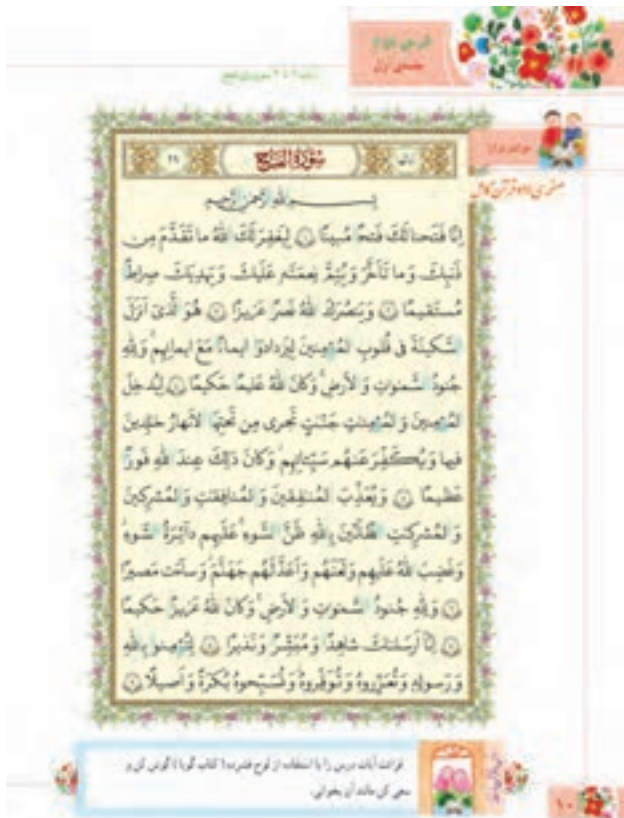 جلسه‌ی اوّل
سُورَةُ الفَتح
بِسمِ اللهِ الرَّحمٰنِ الرَّحيمِ
اِنّا فَتَحنا لَكَ فَتحًا مُبينًا ۝۱ لِيَغفِرَ لَكَ اللهُ ما تَقَدَّمَ مِن
ذَنبِكَ وَ ما تَأَخَّرَ وَ يُتِمَّ نِعمَتَه عَلَيكَ وَ يَهدِيَكَ صِراطًا
مُستَقيمًا ۝۲ وَ يَنصُرَكَ اللهُ نَصرًا عَزيزًا ۝۳ هُوَ الَّذى اَنزَلَ
السَّكينَةَ فى قُلوبِ المُؤمِنينَ لِيَزدادوا ايمانًا مَعَ ايمانِهِم وَ لِلّٰهِ
جُنودُ السَّمٰوٰتِ وَ الاَرضِ وَ كانَ اللهُ عَليمًا حَكيمًا ۝۴ لِيُدخِلَ
المُؤمِنينَ وَ المُؤمِنٰتِ جَنّٰتٍ تَجرى مِن تَحتِهَا الاَنهارُ خٰلِدينَ
فيها وَ يُكَفِّرَ عَنهُم سَيِّئاتِهِم وَ كانَ ذٰلِكَ عِندَ اللهِ فَوزًا
عَظيمًا ۝۵ وَ يُعَذِّبَ المُنافِقينَ وَ المُنافِقاتِ وَ المُشرِكينَ
وَ المُشرِكٰتِ الظّانّينَ بِاللهِ ظَنَّ السَّوءِ عَلَيهِم دائِرَةُ السَّوءِ
وَ غَضِبَ اللهُ عَلَيهِم وَ لَعَنَهُم وَ اَعَدَّ لَهُم جَهَنَّمَ وَ ساءَت مَصيرًا
۝۶ وَ لِلّٰهِ جُنودُ السَّمٰوٰتِ وَ الاَرضِ وَ كانَ اللهُ عَزيزًا حَكيمًا
۝۷ اِنّا اَرسَلنٰكَ شاهِدًا وَ مُبَشِّرًا وَ نَذيرًا ۝۸ لِتُؤمِنوا بِاللهِ
وَ رَسولِه وَ تُعَزِّروهُ وَ تُوَقِّروهُ وَ تُسَبِّحوهُ بُكرَةً وَ اَصيلًا ۝۹
قرائت آیات درس را با استفاده از لوح فشرده (کتاب گویا) گوش کن و
سعی کن مانند آن بخوانی.
۱۰